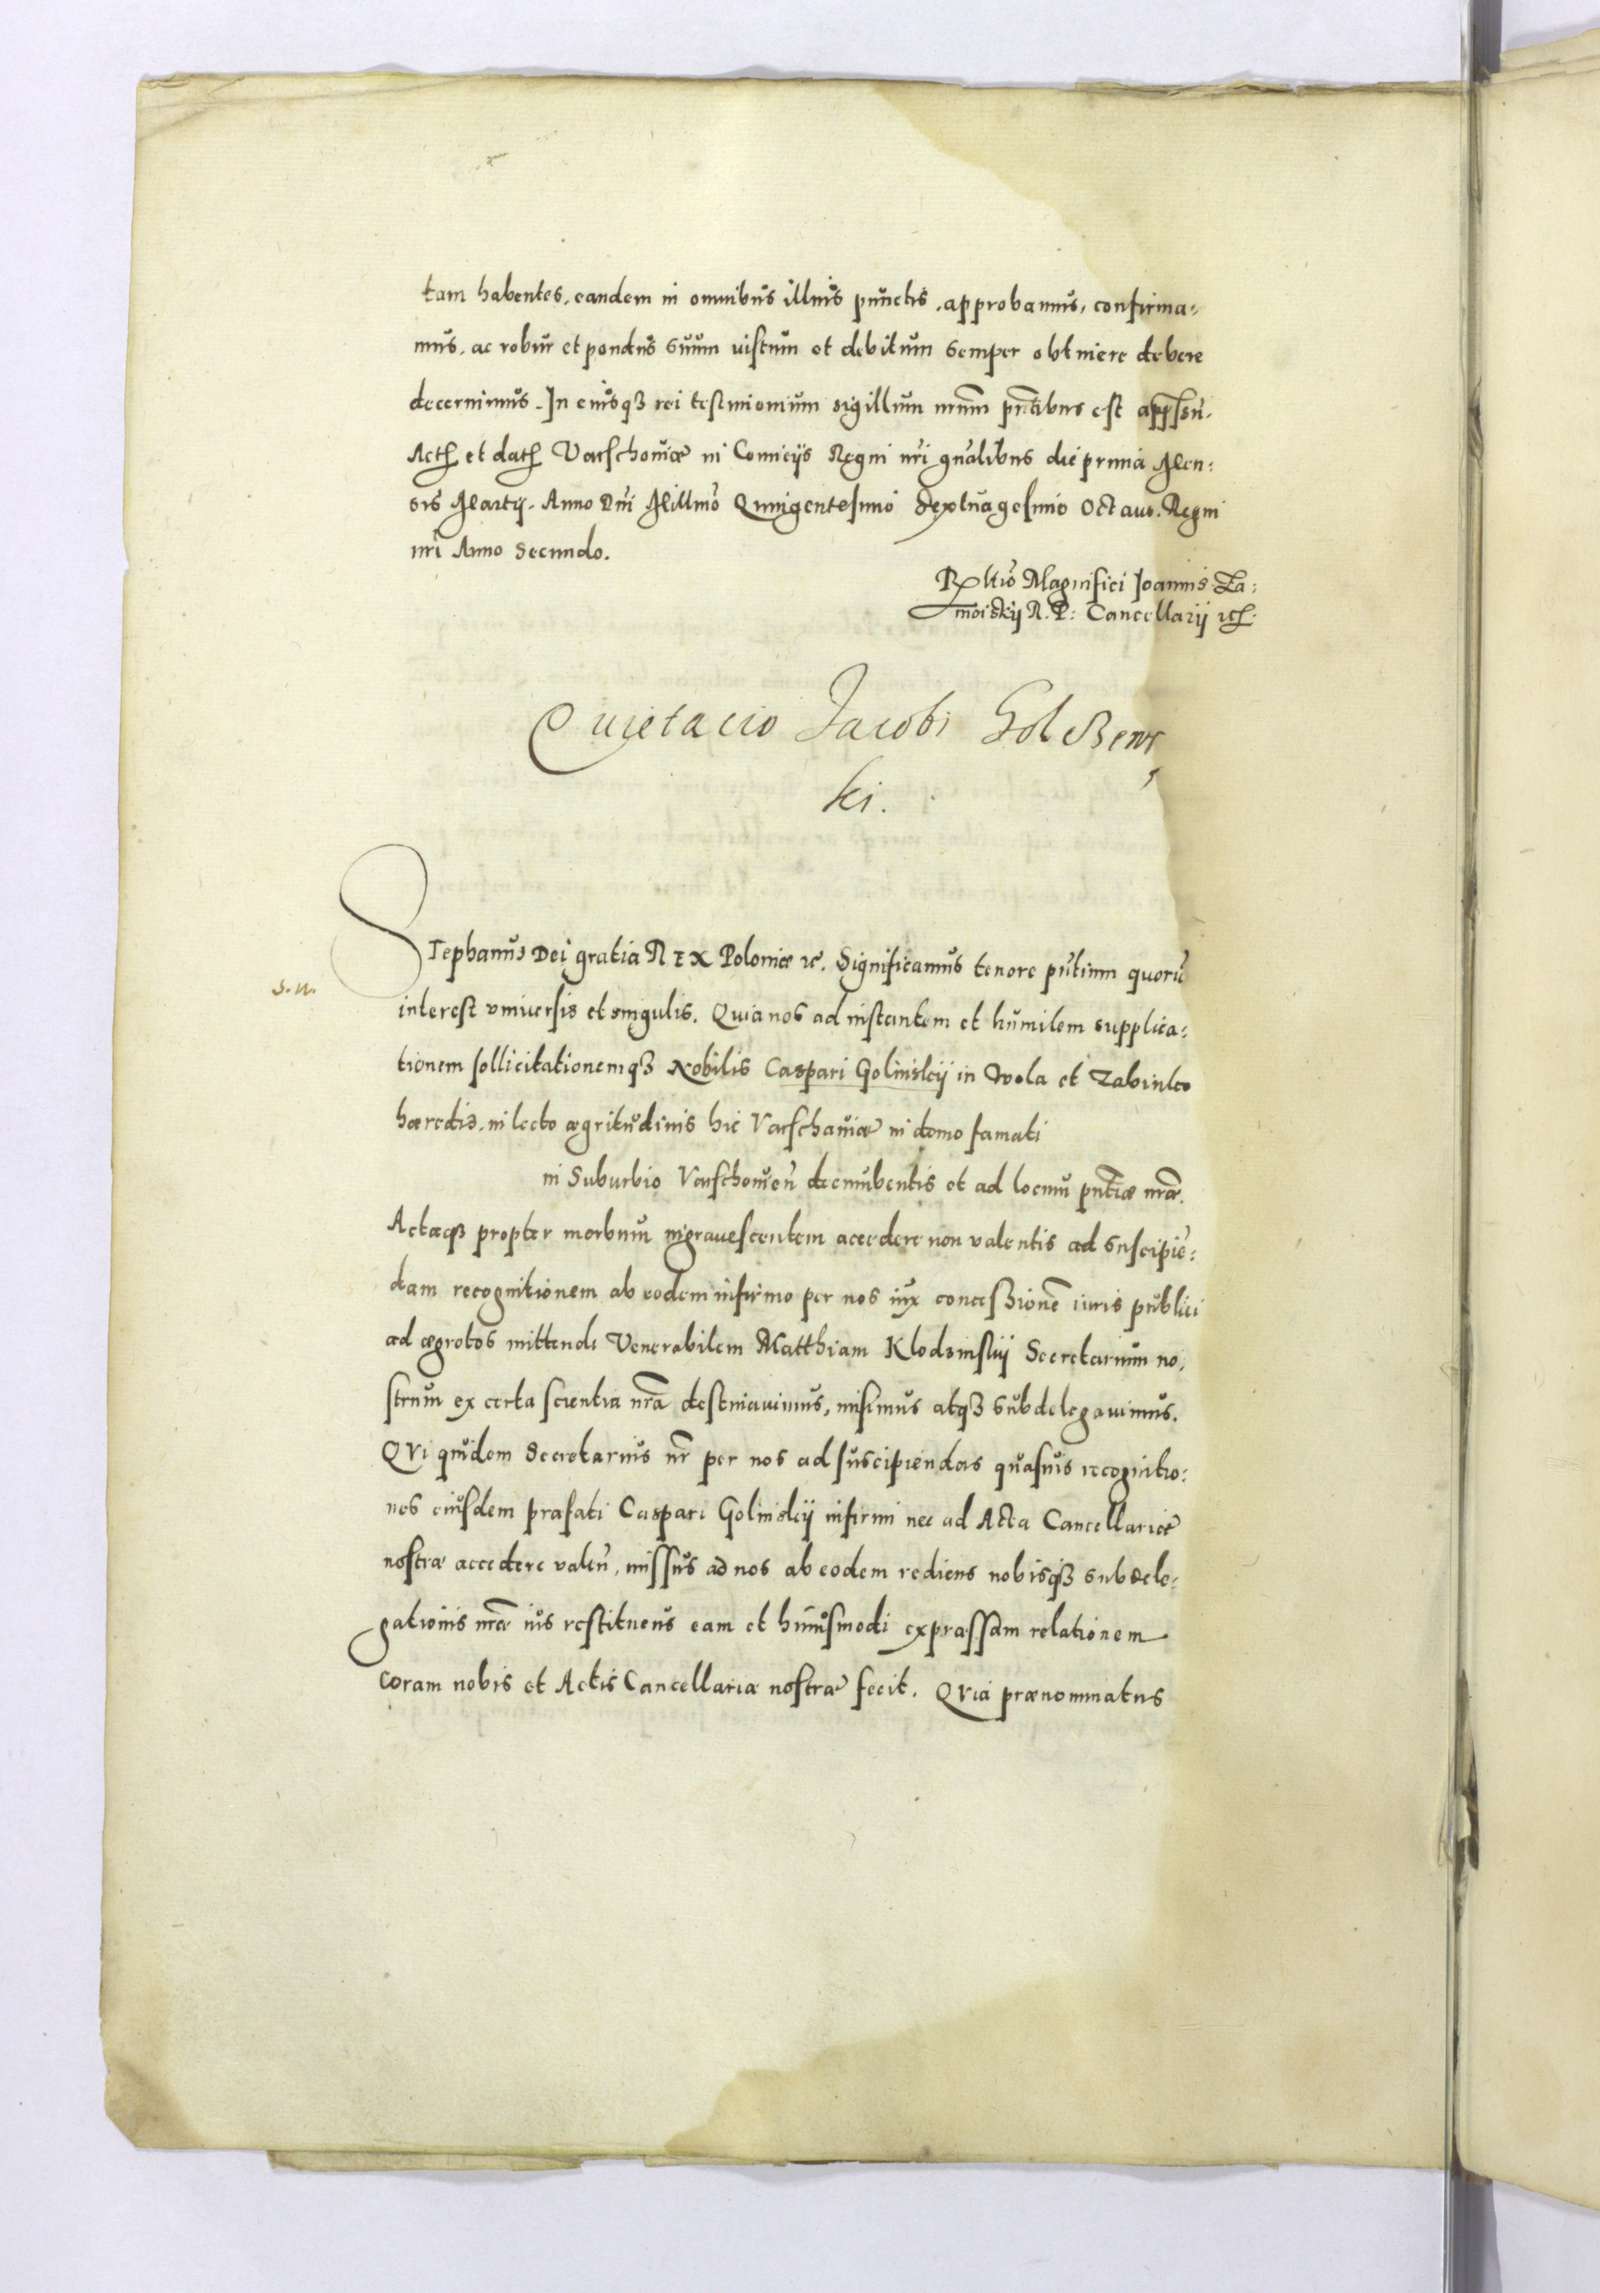 tam habentes, eandem in omnibus illius punctis, approbamus, confirma=
mus, ac robur et pondus suum iustum et debitum semper obtinere debere
decernimus. In cuiusqꝫ rei testimonium sigillum nrum pntibus est appēsū.
Act. et dat. Varschoviæ in Comicijs Regni nri gnalibus die prima Men=
sis Martij. Anno Dni Millmo Quingentesimo Septuagesimo Octauo. Regni
nri Anno Secundo.
Rltio Magnifici Joannis Za=
moiskij R. P: Cancellarij etc.
Quietacio Jacobi
ki.
Stephanus Dei gratia REX Poloniæ etc. Significamus tenore pntium quorū
S. N.
interest vniuersis et singulis. Quia nos ad instantem et humilem supplica=
tionem sollicitationemqꝫ Nobilis Caspari Golinskij in Wola et
hæredis, in lecto ægritudinis hic Varschaviæ in domo famati
in Suburbio Varschouien decumbentis et ad locum pntiæ nræ.
Actaqꝫ propter morbum ingrauescentem accedere non valentis ad suscipiē=
dam recognitionem ab eodem infirmo per nos iux concessionē iuris publici
ad ægrotos mittendi Venerabilem Matthiam Klodzinskij Secretarium no=
strum ex certa scientia nra destinauimus, misimus atqꝫ subdelegauimus.
QVi quidem Secretarius nr per nos ad suscipiendas quasuis recognitio=
nes eiusdem præfati Caspari Golinskij infirmi nec ad Acta Cancellariæ
nostræ accedere valen, missus ad nos ab eodem rediens nobisqꝫ subdele=
gationis nræ ius restituens eam et huiusmodi expræssam relationem
coram nobis et Actis Cancellariæ nostræ fecit. QVia prænominatus